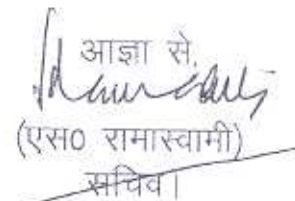 आज्ञा से,
(एस0 रामास्वामी)
सचिव।